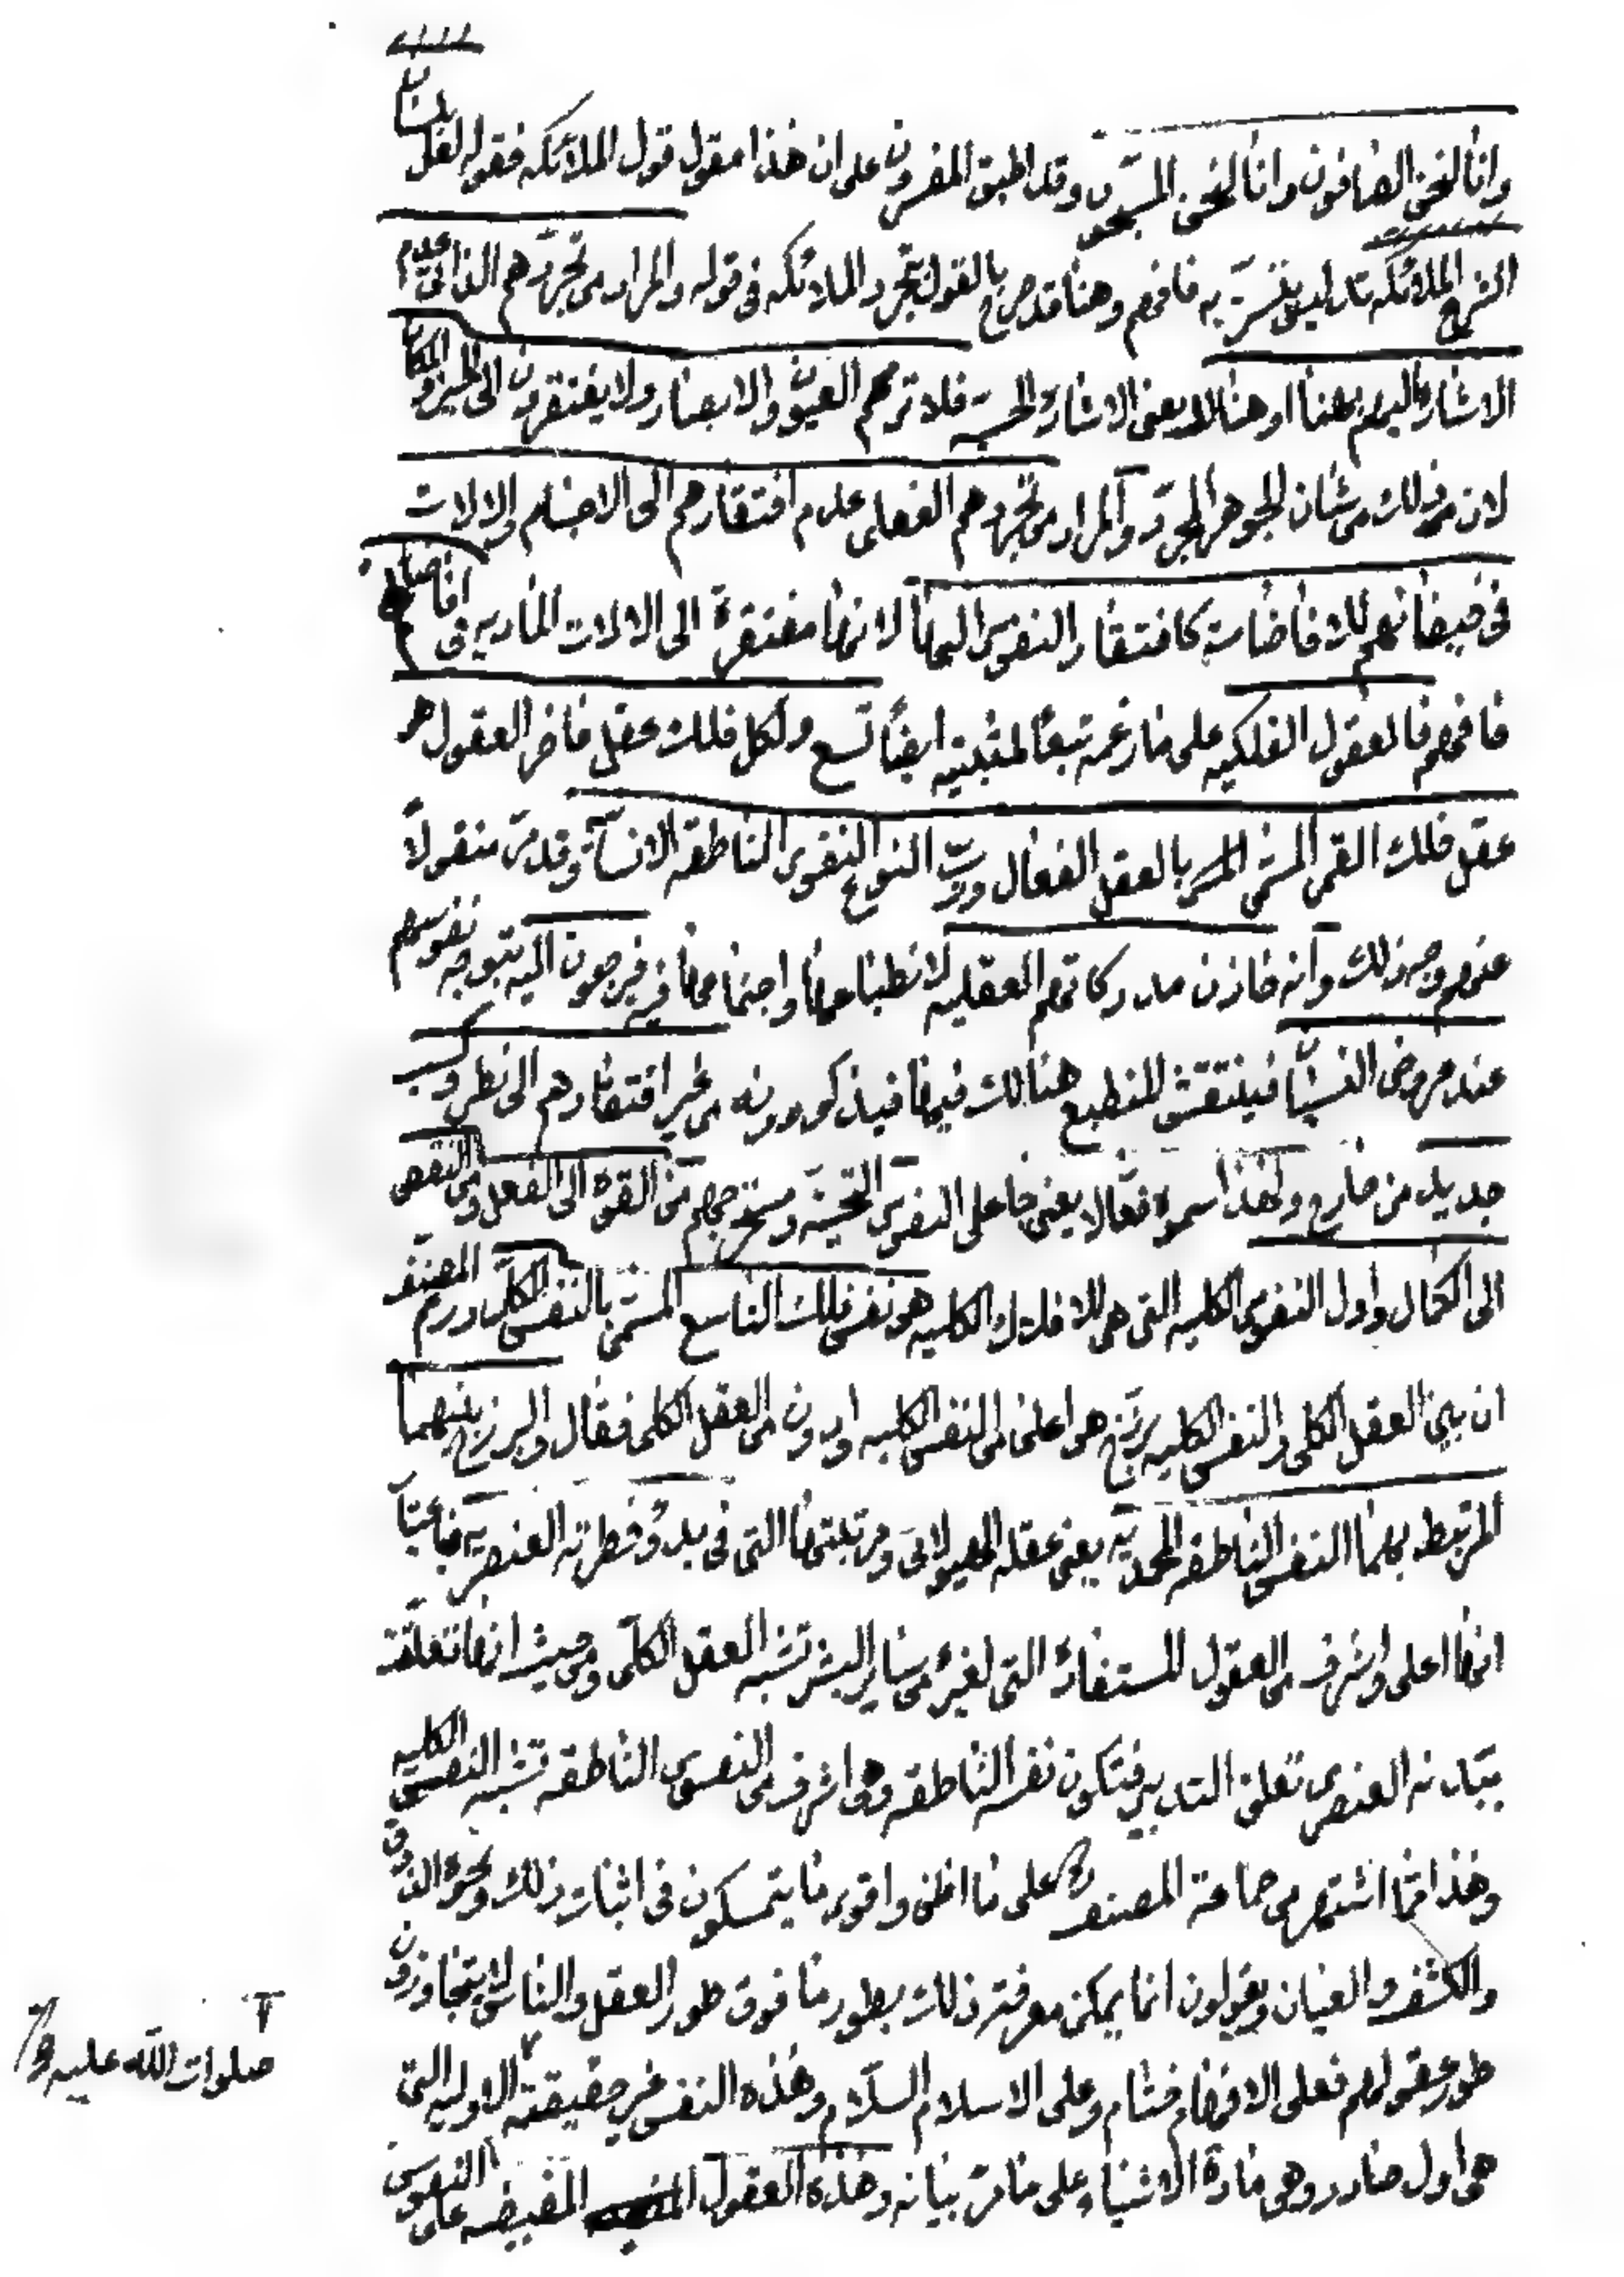 وانا لنحن الصافون وانا لنحن المسبحون وقد اطبق المفسرون على ان هذا مقول قول الملائكه فقوله بلسان
الشرع الملائكه تدليس بفسر به فافهم وهنا قد صرح بالقول بتجرد الملائكه فى قوله والمراد من تجردهم الذاتى عدم
الاشارة اليهم بهنا او هنالك يعنى الاشارة الحسيه فلا ترهم العيون والابصار ولا يفتقرون الى الحيز والمكان
لان ذلك من شان الجوهر المجرد والمراد من تجردهم الفعلى عدم افتقارهم الى الاجسام والالات
فى فيضانهم للافاضات كافتقار النفوس اليها لانها مفتقرة الى الالات الماديه فى افاضاتها
فافهم فالعقول الفلكيه على ما زعمه تبعا لمثبتيه ايضا تسع ولكل فلك عقل فاخر العقول هو
عقل فلك القمر المسمى بالعقل الفعال ورب النوع النفوس الناطقه الانسانية وقد مر منقولا
عنهم وجه ذلك وانه خازن مدركاتهم العقليه لانطباعها واجتماعها فيه فيرجعون اليه بتوجه نفوسهم
عند عروض النسيان فينتقش المنطبع هنالك فيها فيذكرونه من غير افتقارهم الى نظر وكسب
جديد من خارج ولهذا سموه فعالا يعنى جاعل النفوس ومستخرجهم من القوة الى الفعل ومن النقص
الى الكمال واول النفوس الكليه التى هى للافلاك الكليه هو نفس فلك التاسع المسمى بالنفس الكلى ورم المصنف
ان بين العقل الكلى والنفس الكليه برزخ هو اعلى من النفس الكليه ادون من العقل الكلى فقال والبرزخ بينهما
المرتبط بهما النفس الناطقه المحمديه يعنى عقله الهيولانى ومرتبتها التى فى بدو فطرته العنصريه فباعتبار
انها اعلى واشرف من العقول المستفادة التى لغيره من ساير البشر تشبه العقل الكلى ومن حيث انها تعلقت
ببدنه العنصرى تعلق التدبير فتكون نفسه الناطقه وهى اشرف من النفوس الناطقه تشبه النفس الكليه
وهذا مما اشتهر من جماعة المصنف على ما اظن واقوى ما يتمسكون فى اثبات ذلك ونحوه الذوق
والكشف والعيان ويقولون انما يمكن معرفة ذلك بطور ما فوق طور العقل والناس لا يتجاوزون
طور عقولهم فعلى الافهام ختام وعلى الاسلام السلام وهذه النفس غير حقيقته الاوليه التى
هى اول صادر وهى مادة الاشياء على ما مر بيانه وهذه العقول المفيضه على النفوس
صلوات الله عليه